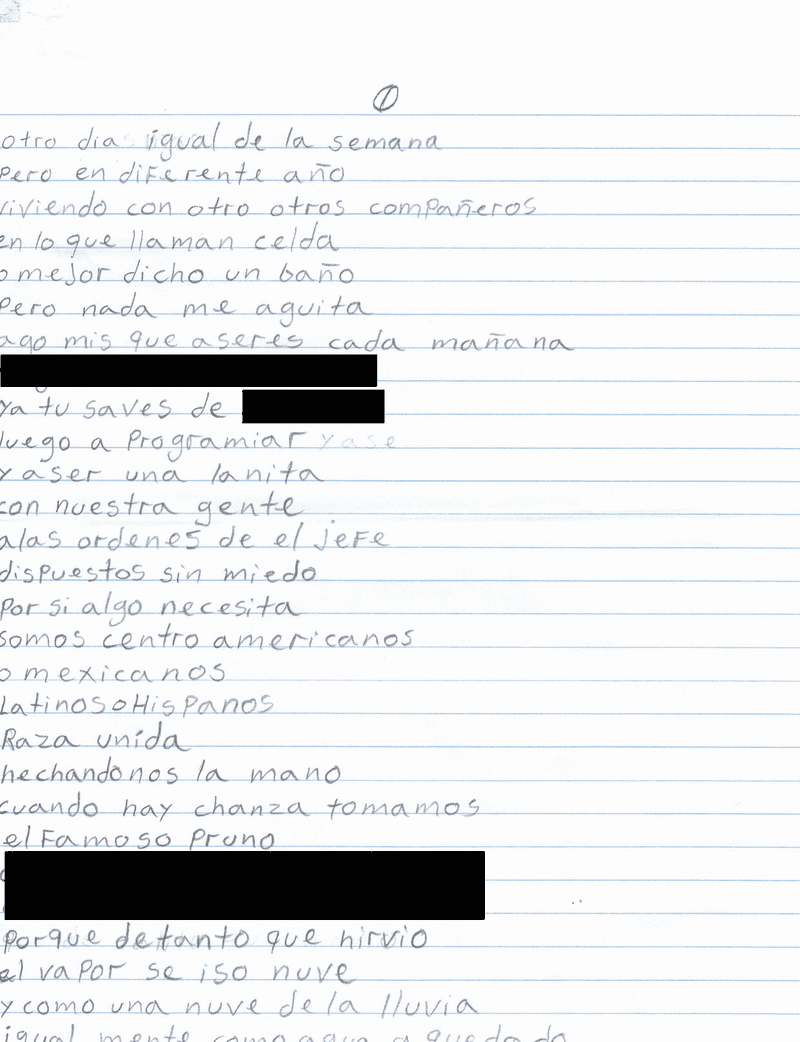 ①
otro dia igual de la semana
Pero en diferente año
viviendo con otro otros compañeros
en lo que llaman celda
o mejor dicho un baño
Pero nada me aguita
ago mis que aseres cada mañana
ya tu saves de
luego a Programiar yase
y aser una lanita
con nuestra gente
alas ordenes de el jefe
dispuestos sin miedo
Por si algo necesita
somos centro americanos
o mexicanos
Latinos o Hispanos
Raza unida
hechandonos la mano
cuando hay chanza tomamos
el Famoso Pruno
porque detanto que hirvio
el vapor se iso nuve
y como una nuve de la lluvia
igual mente como agua a quedado